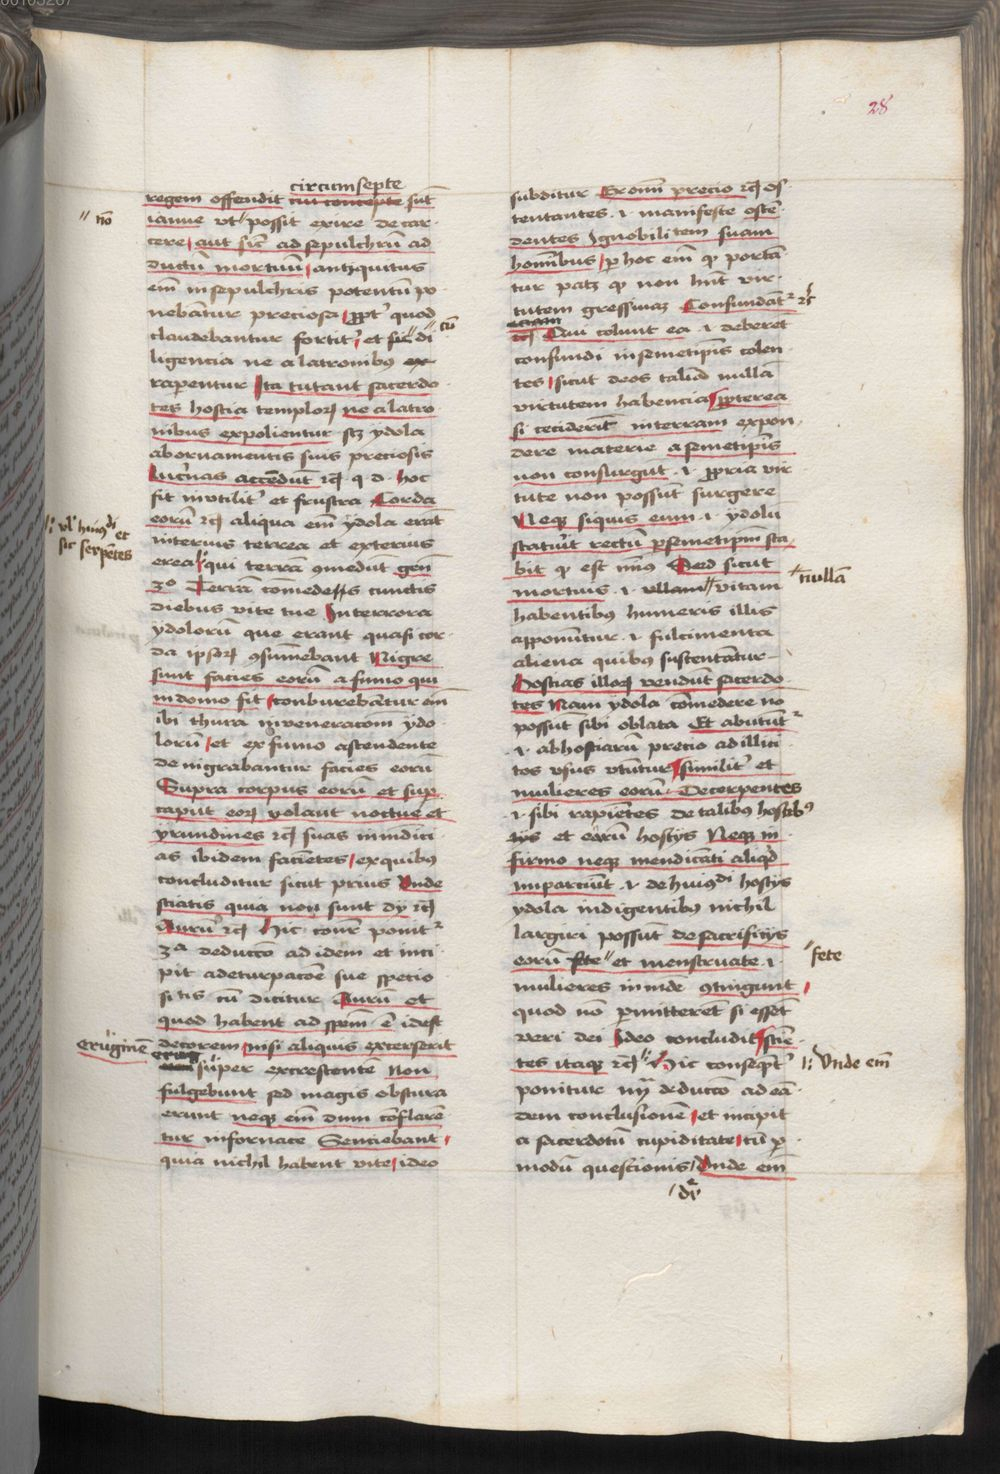 28
circumsepte
regem offendit cui concepte sūt
ianue vt" possit exire de car-
" nō
cere, aut sic̄ ad sepulchrū ad
ductū mortuū, antiquitus
em̄ in sepulchris potentū po
nebātur preciosa, ꝓpt' quod
claudebantur fortit', et sic" di
" cū
ligencia ne a latronibus ex-
rapentur Ita tutant sacerdo
tes hostia temploꝝ ne a latro
nibus expolientur scꝫ ydola
ab ornamentis suis preciosis
Lucernas accēdūt ⁊cꝫ q. d. hoc
fit inutilit' et frustra Corda
eorū ⁊cꝫ aliqua em̄ ydola erāt
interius terrea et exterius
vl' huiꝰdi et
sic serpētes
erea qui terra ꝯmedūt gen̄
3º Terrā comedes cunctis
diebus vite tue Interrora
ydolorū que erant quasi cor-
da ipsoꝝ ꝯsumebant Nigre
sunt facies eorū a fumo qui
in domo fit, conburebātur em̄
ibi thura in veneracom̄ ydo
lorū, et ex fumo ascendente
denigrabantur facies eorū
Supra corpus eorū et sup
caput eoꝝ volant noctue et
yrundines ⁊cꝫ suas in indici
as ibidem faciētes, ex quibus
concluditur sicut prius Unde
sciatis quia non sunt dij ⁊cꝫ
Aurū ⁊cꝫ Hic cōnr ponit'
3ª deductō ad idem et inci
pit a deturpacoē sue specio
sitis cū dicitur Aurū et
quod habent ad spem̄ ē idest
decorem, nisi aliquis exterserit
eruginē
super excrescentē Non
fulgebunt sed magis obscura
erunt neqꝫ em̄ dum conflarē
tur in fornace Senciebant,
quia nichil habent vite, ideo
subditur Ex omni precio ⁊cꝫ os-
tentantes .i. manifeste ostē
dentes Ignobilitem suam
hominibus, p hoc em̄ ꝙ portā
tur patꝫ ꝙ non hn̄t vir
tutem gressiuaꝫ Confundāt' ⁊c̄
Qui colunt ea .i. deberet
confundi in semetipīs colen
tes, sicut deos taliū nullā
virtutem habencia, ꝓpterea
si ceciderīt in terram expon,
dere materie a semetipīs
non consurgūt .i. ꝓpria vir
tute non possūt surgere
Neqꝫ si quis eum .i. ydolū
statuīt rectū ꝑ semetipm̄ sta
bit ꝙ est min⁹ Sed sicut
mortuis .i. ullam" vitam
" nullā
habentibꝰ humeris illis
apponūtur .i. fulcimenta
aliena quibꝰ sustentātur
Hostias illoꝝ vendūt sacerdo
tes Nam ydola comedere nō
possūt sibi oblata Et abutūt'
.i. ab hostiarū precio ad illici
tos vsus vtūtur, similit' et
mulieres eorū. Decerpentes
.i. sibi rapiētes de talibꝰ hostibꝰ
ijs et earū hostijs Neqꝫ in
firmo neqꝫ mendicāti aliqd
impartiūt .i. de huiꝰdi hostijs
ydola indigentibꝰ nichil
largiri possūt de sacrificijs
eorū fete" et menstruate .i.
" fete
mulieres inmūde ꝯtingunt,
quod nō ꝑmitterēt si essēt
veri dei, Ideo concludit, Sciē
tes itaqꝫ ⁊cꝫ Hic conseqꝫt'
Unde em̄
ponitur iiij deductō ad eā
dem conclusionē, et incipit
a sacerdotū cupiditate, tū ꝑ
modū questionis, Unde em̄